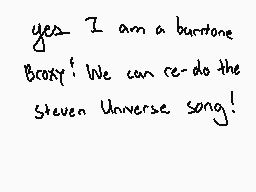 yes I am a baritone
Broxy! We can re-do the
Steven Universe song!